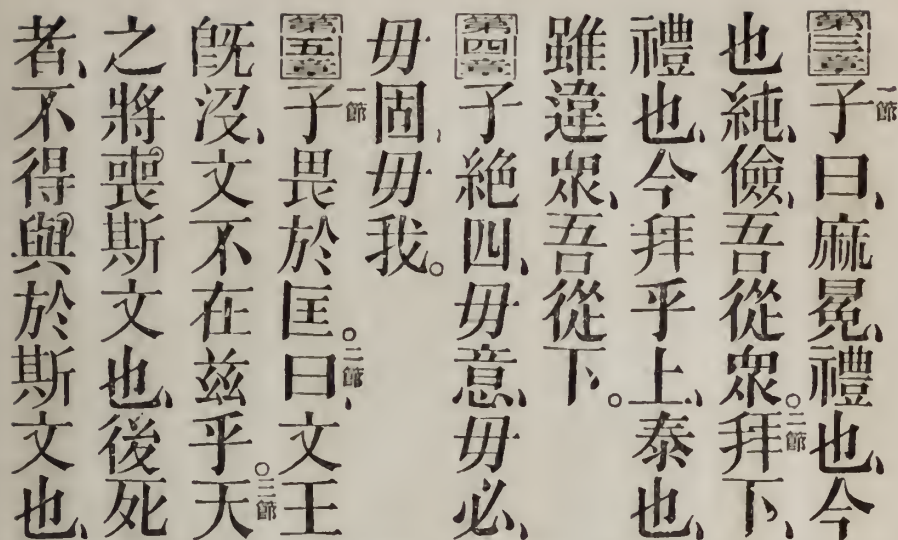 第三章 一節 子曰、麻冕、禮也、今
也純、儉、吾從眾。二節 拜下、
禮也、今拜乎上、泰也、
雖違眾、吾從下。
第四章 子絕四、毋意、毋必、
毋固、毋我。
第五章 一節 子畏於匡。二節 曰、文王
旣沒、文不在茲乎。三節 天
之將喪斯文也、後死
者、不得與於斯文也、